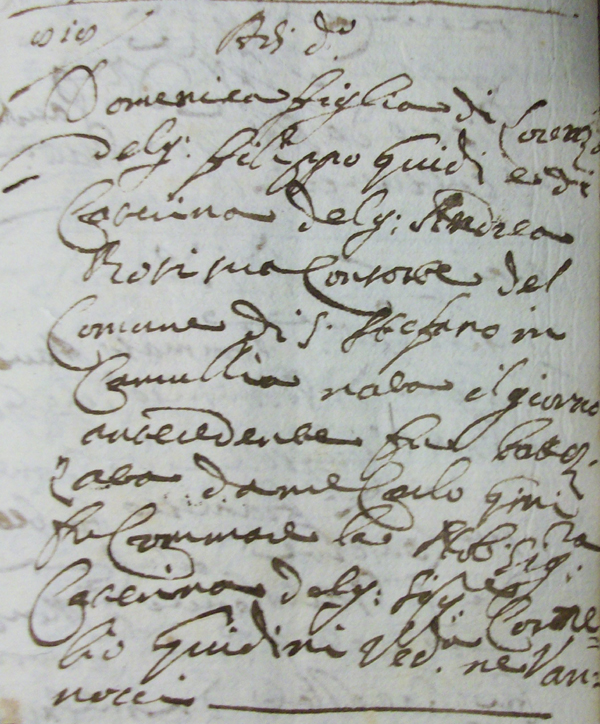 Adi d.º
Domenica figlia di Lorenzo
del q: Filippo Guidi e di
Caterina del q: Andrea
Rosi sua Consorte del
Comune di S. Stefano in
nata il giorno
antecedente fu battez:
zata da me Carlo
fu Commare la Nob: Sig:ra
Caterina del q: Sig:re Corne=
lio Guidini Ved:a ne Van=
nocci